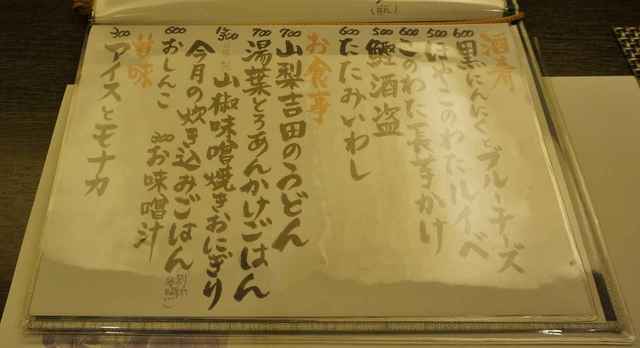 酒肴
600 黒にんにくとブルーチーズ
500 ほやこのわたルイベ
600 このわた長芋かけ
500 鰹酒盗
600 たたみいわし
お食事
700 山梨吉田のうどん
700 湯葉とろあんかけごはん
300 山椒味噌焼きおにぎり
今月の炊き込みごはん
600 おしんこ
300 お味噌汁
甘味
300 アイスとモナカ